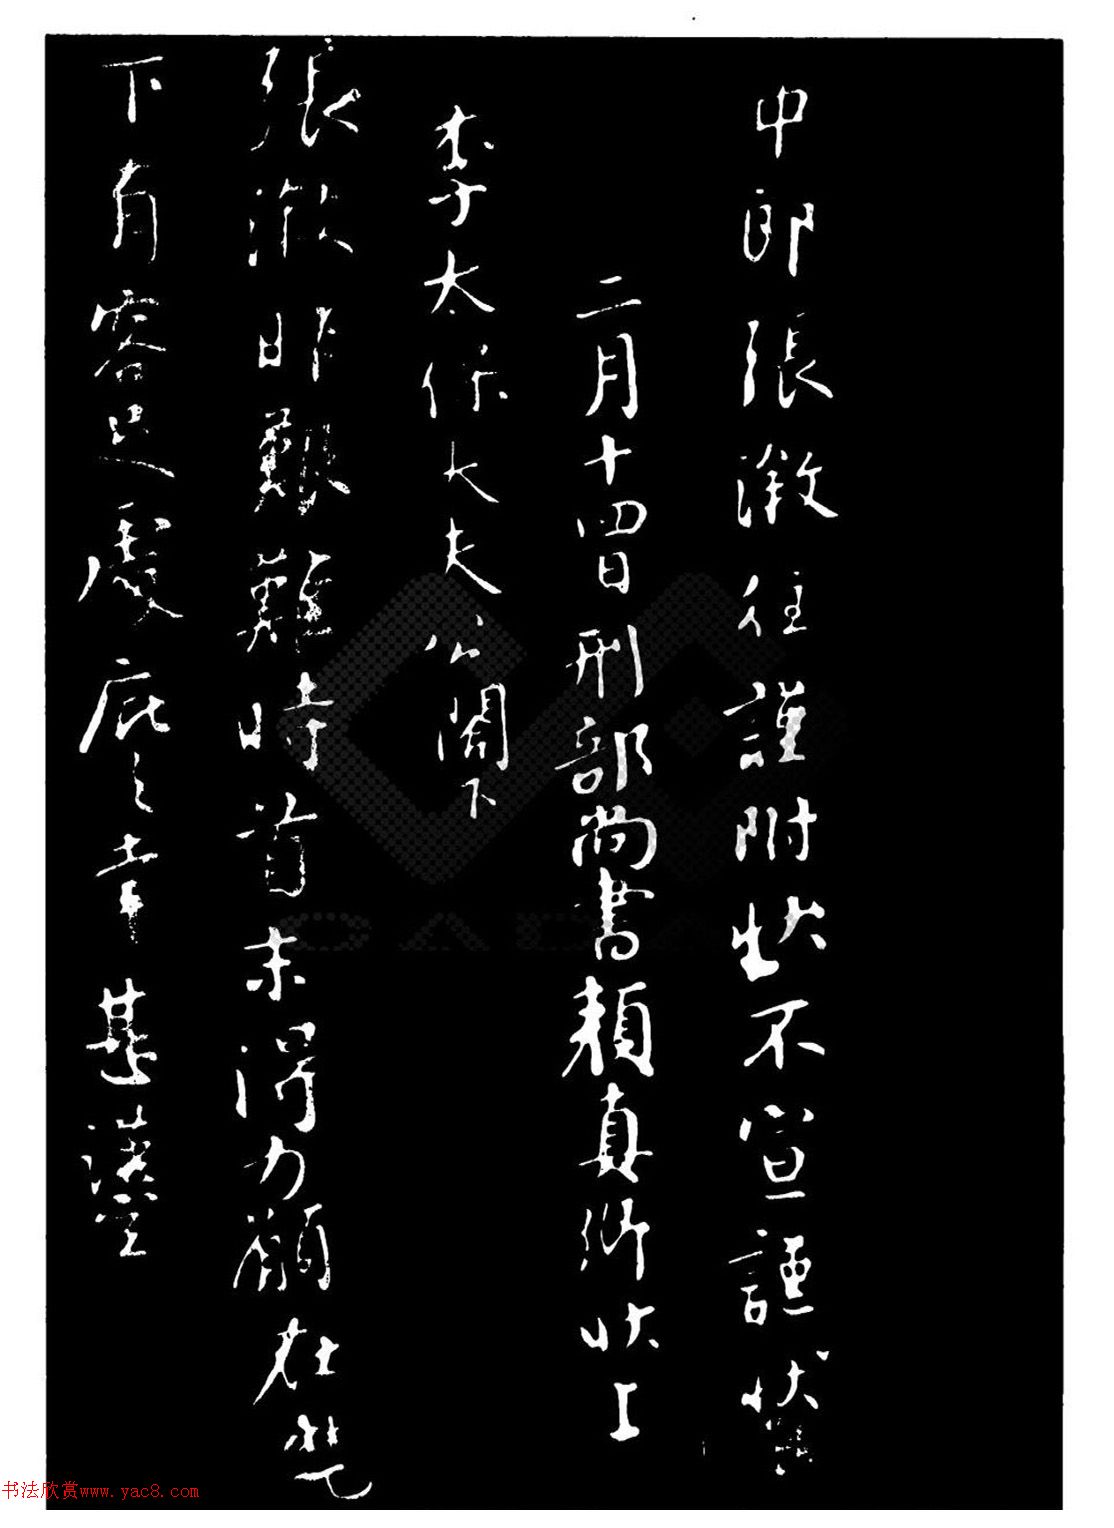 中郎張澂往謹附狀不宣謹狀
二月十四日刑部尚書顏真卿狀上
李太保大夫公閤下
張澂昨艱難時首末得力願在麾
下有容足處庇之幸甚謹空
书法欣赏www.yac8.com